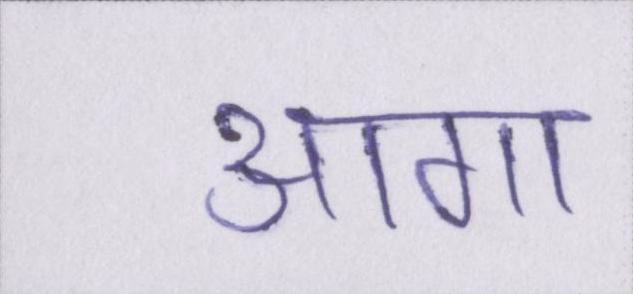 आगा